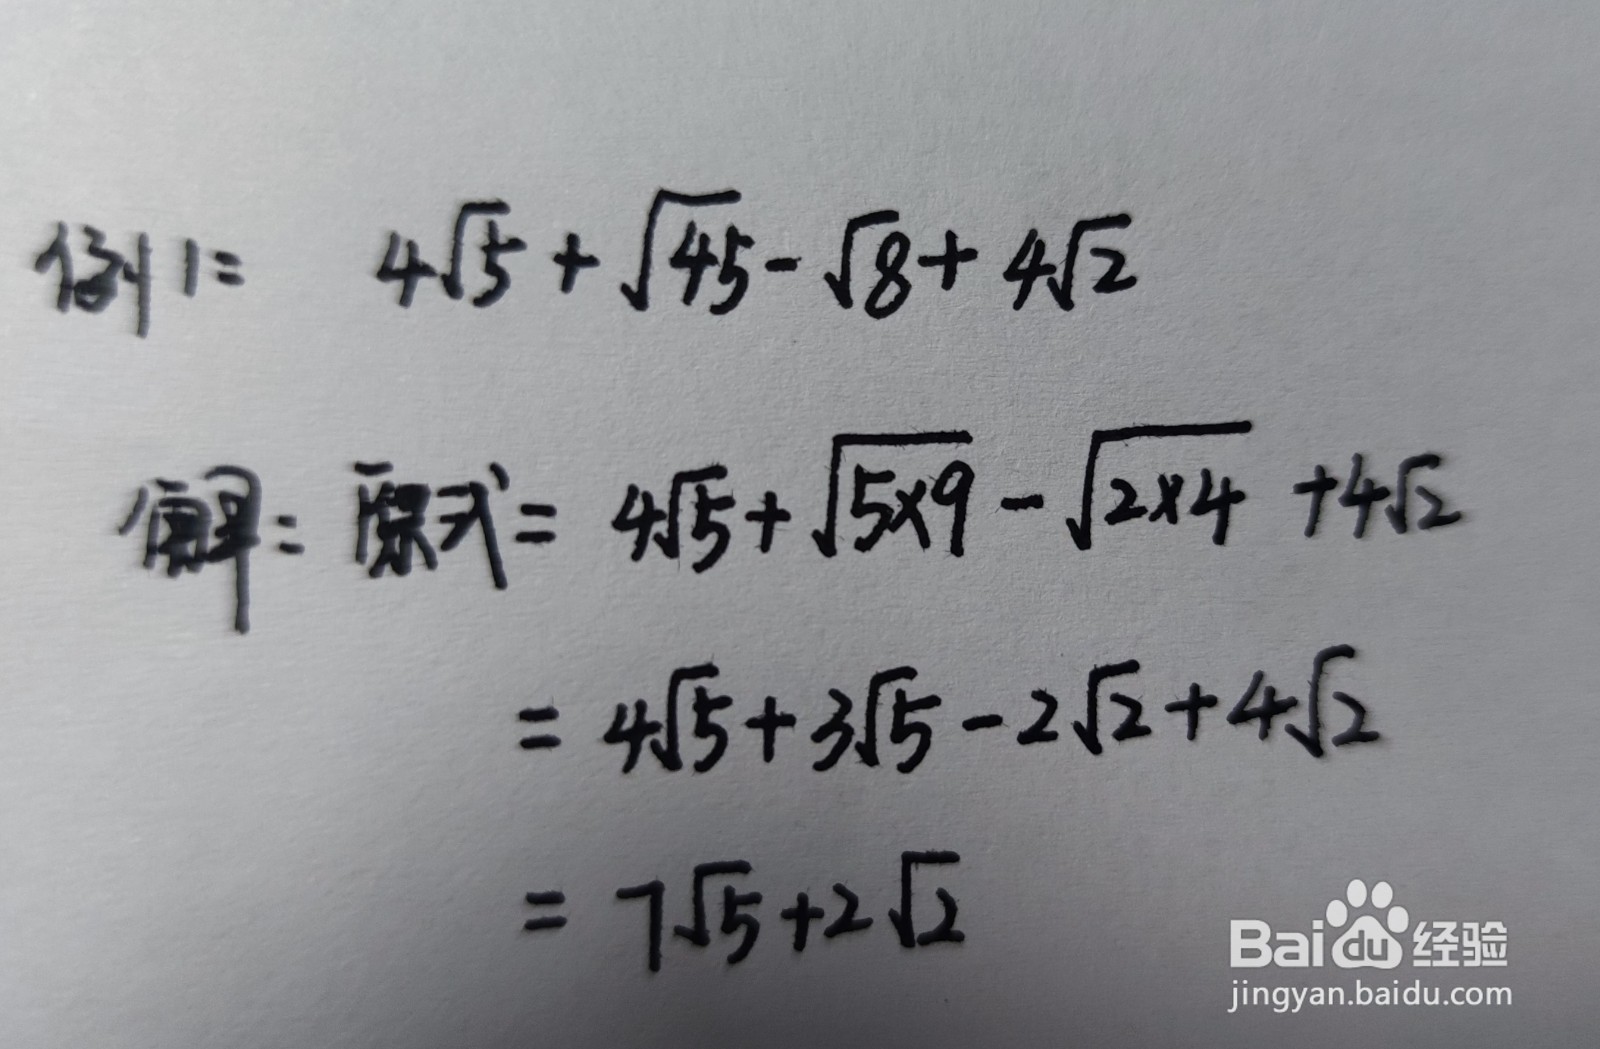 例1: 4√5 + √45 - √8 + 4√2
解: 原式 = 4√5 + √5×9 - √2×4 + 4√2
= 4√5 + 3√5 - 2√2 + 4√2
= 7√5 + 2√2
Baidu经验
jingyan.baidu.com